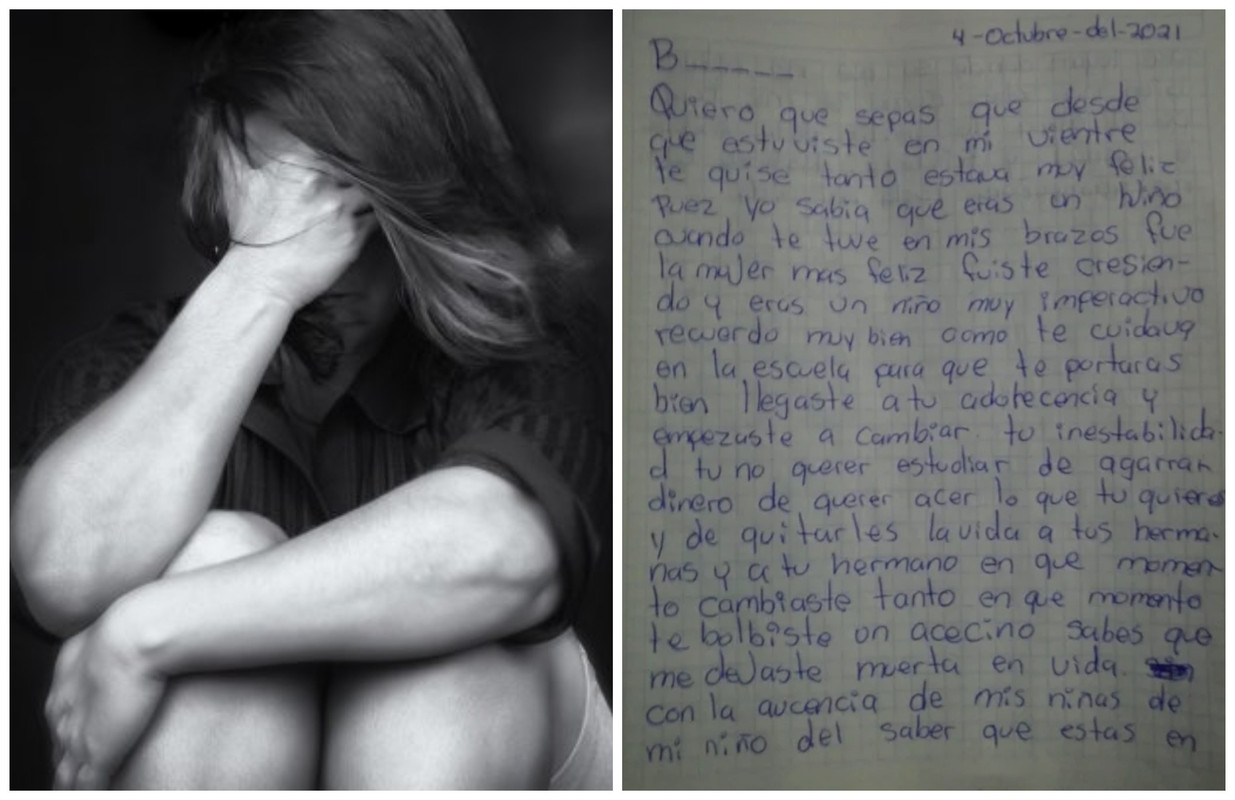 4-Octubre-del-2021
B______
Quiero que sepas que desde
que estuviste en mi vientre
te quise tanto estava muy feliz
puez yo sabia que eras un niño
cuando te tuve en mis brazos fue
la mujer mas feliz fuiste cresien-
do y eras un niño muy imperactivo
recuerdo muy bien como te cuidava
en la escuela para que te portaras
bien llegaste a tu adolecencia y
empezaste a cambiar tu inestabilida-
d tu no querer estudiar de agarrar
dinero de querer acer lo que tu quieres
y de quitarles la vida a tus herma-
nas y a tu hermano en que momen
to cambiaste tanto en que momento
te bolbiste un acecino sabes que
me dejaste muerta en vida.
con la aucencia de mis niñas de
mi niño del saber que estas en